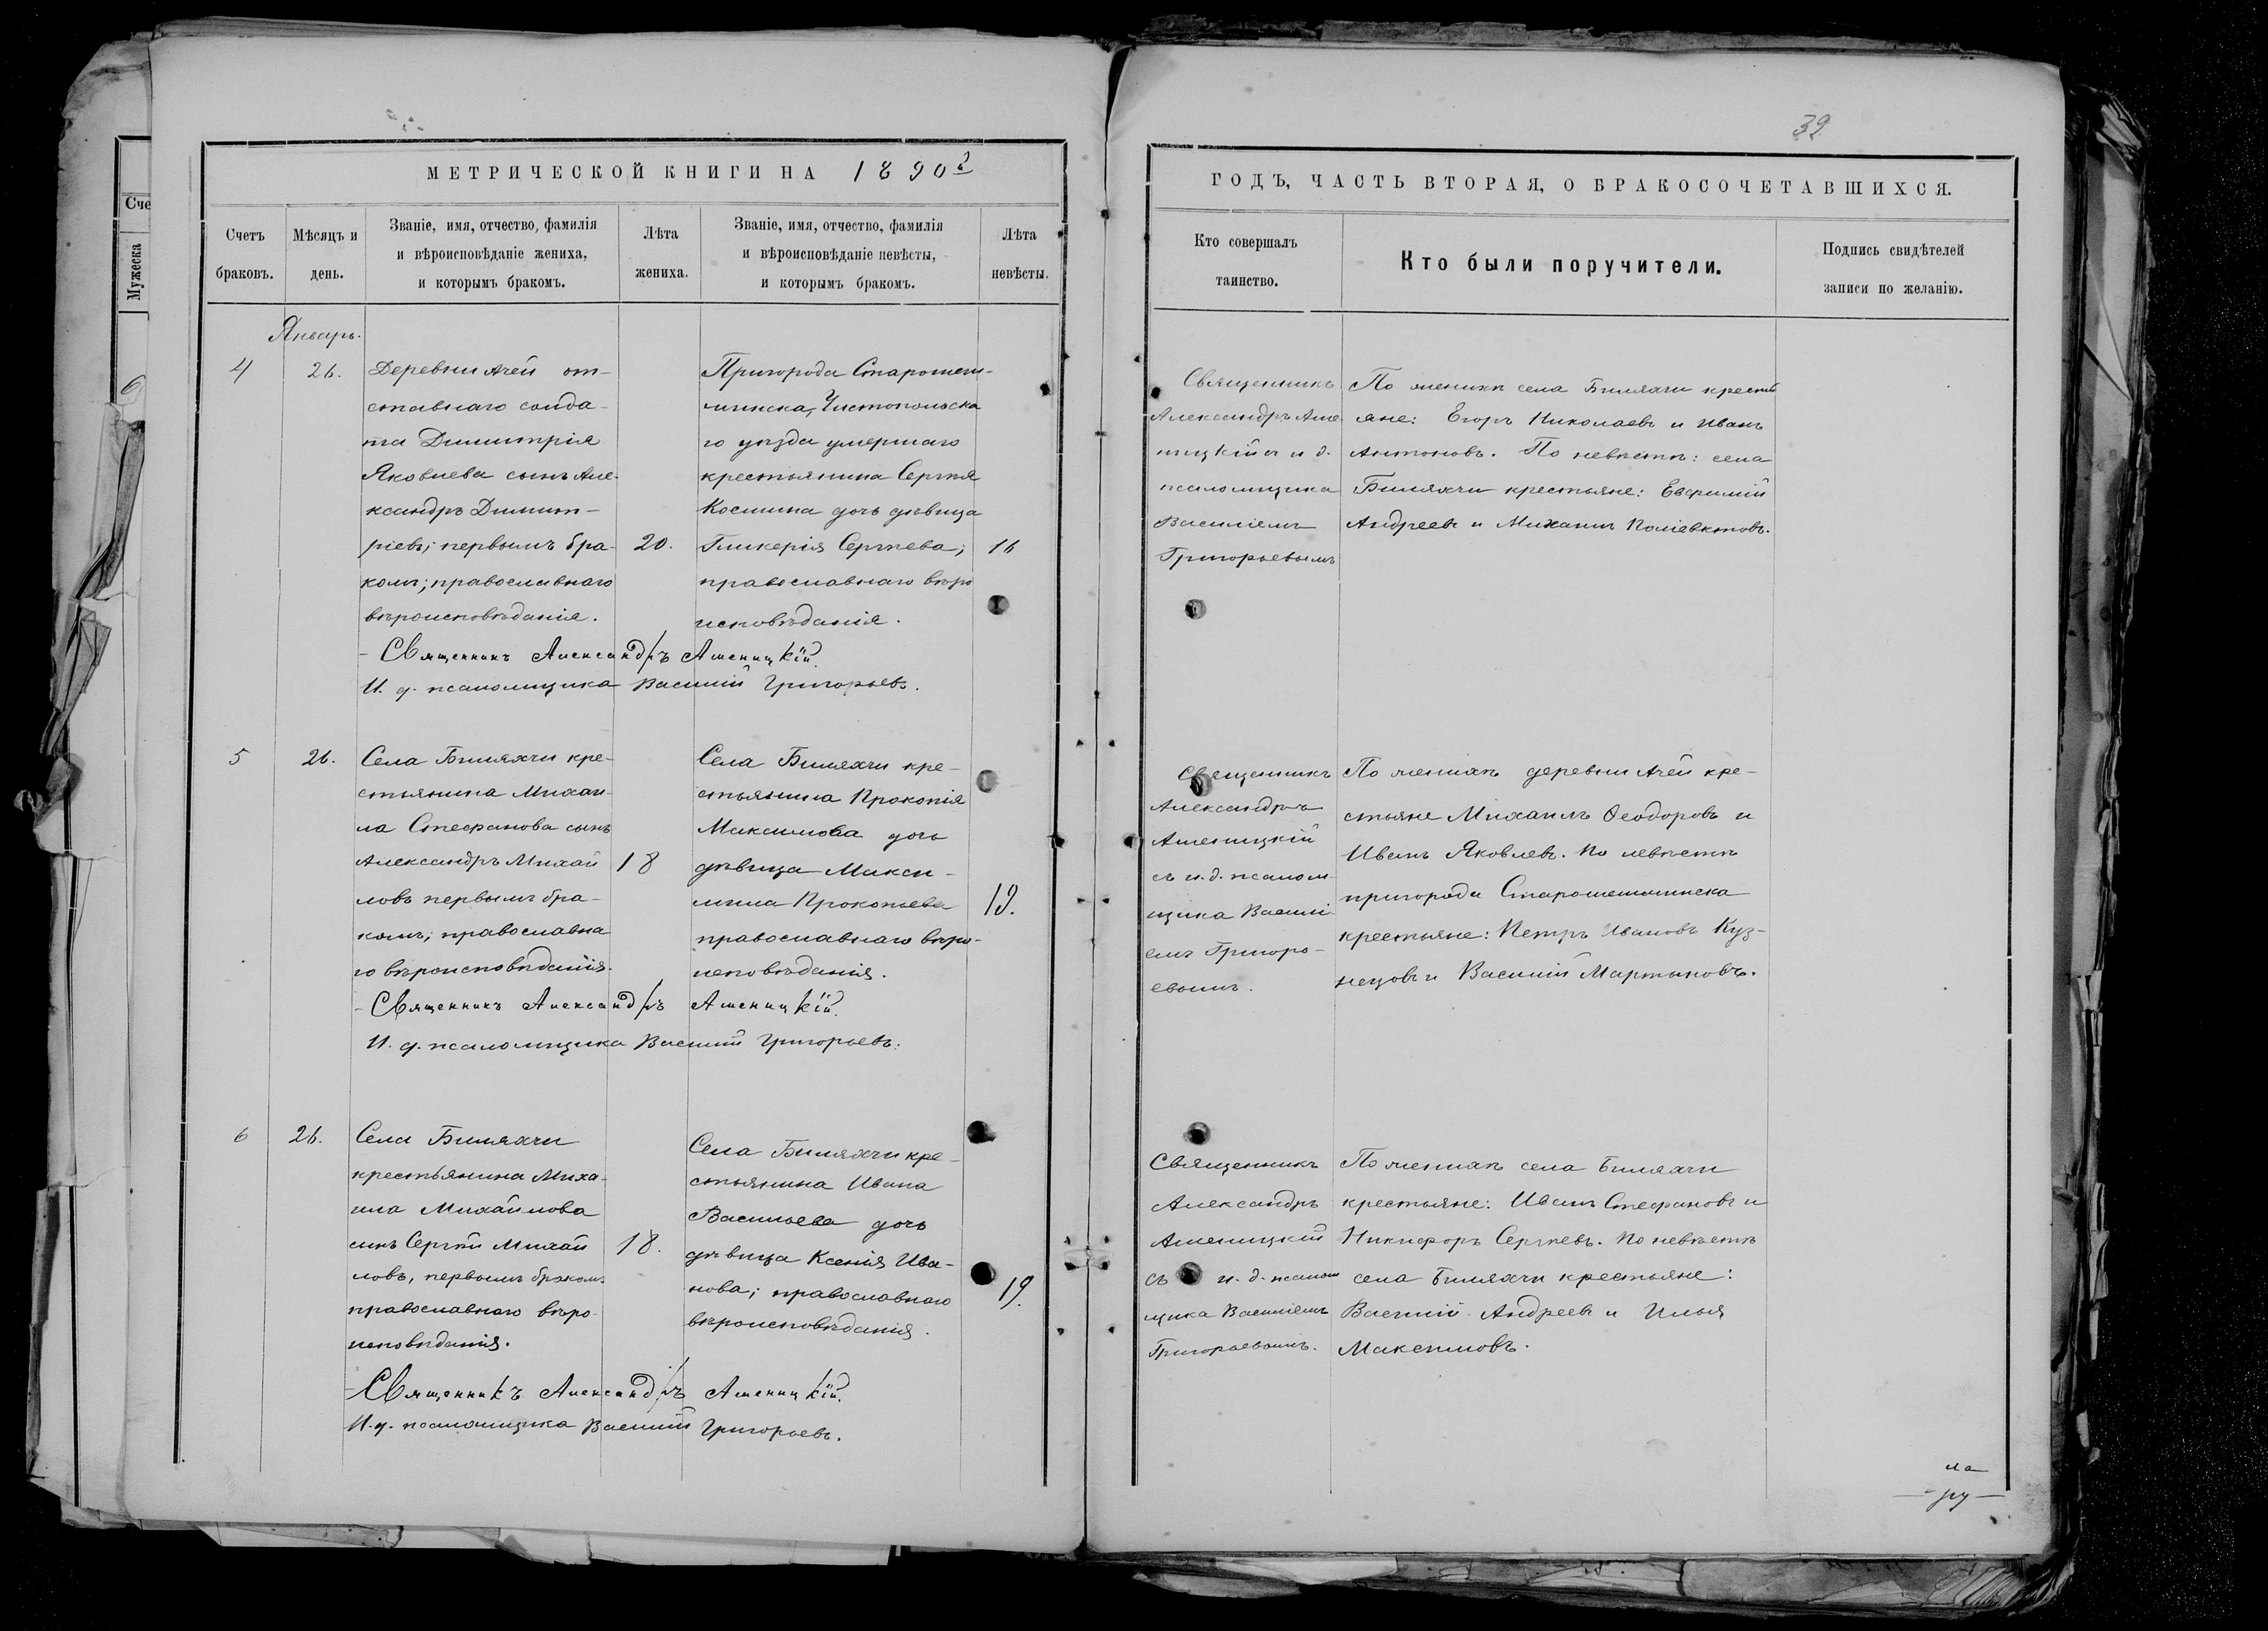 39
МЕТРИЧЕСКОЙ КНИГИ НА 1890 г
Счетъ браковъ.
Мѣсяцъ и день.
Званіе, имя, отчество, фамилія
и вѣроисповѣданіе жениха,
и которымъ бракомъ.
Лѣта жениха.
Званіе, имя, отчество, фамилія
и вѣроисповѣданіе невѣсты,
и которымъ бракомъ.
Лѣта невѣсты.
Январь.
4
26.
Деревни Ачей от-
ставнаго солда-
та Димитрія
Яковлева сынъ Але-
ксандръ Димит-
ріевъ; первымъ бра-
комъ; православнаго
вѣроисповѣданія.
20.
Пригорода Старошеш-
минска, Чистопольска
го уѣзда умершаго
крестьянина Сергѣя
Космина дочь дѣвица
Гликерія Сергѣева;
православнаго вѣро
исповѣданія.
16
Священникъ Александръ Ашеницкій.
И. д. псаломщика Василій Григорьевъ.
5
26.
Села Биляхчи кре-
стьянина Михаи-
ла Стефанова сынъ
Александръ Михай
ловъ первымъ бра-
комъ; православна
го вѣроисповѣданія.
18
Села Биляхчи кре-
стьянина Прокопія
Максимова дочь
дѣвица Макси-
мила Прокопьева
православнаго вѣро-
исповѣданія.
19.
Священникъ Александръ Ашеницкій.
И. д. псаломщика Василій Григорьевъ.
6
26.
Села Биляхчи
крестьянина Миха-
ила Михайлова
сынъ Сергѣй Михай
ловъ, первымъ бракомъ
православнаго вѣро-
исповѣданія.
18.
Села Биляхчи кре-
стьянина Ивана
Васильева дочь
дѣвица Ксенія Ива-
нова; православнаго
вѣроисповѣданія.
19.
Священникъ Александръ Ашеницкій.
И. д. псаломщика Василій Григорьевъ.
ГОДЪ, ЧАСТЬ ВТОРАЯ, О БРАКОСОЧЕТАВШИХСЯ.
Кто совершалъ
таинство.
Кто были поручители.
Подпись свидѣтелей
записи по желанію.
Священникъ
Александръ Аше-
ницкій и д.
псаломщика
Василіемъ
Григорьевымъ
По женихѣ села Биляхчи кресть
яне: Егоръ Николаевъ и Иванъ
Антоновъ. По невѣстѣ: села
Биляхчи крестьяне: Евфимій
Андреевъ и Михаилъ Поліевктовъ.
Священникъ
Александръ
Ашеницкій
съ и. д. псалом-
щика Василі
емъ Григорь-
евымъ.
По женихѣ деревни Ачей кре-
стьяне Михаилъ Ѳеодоровъ и
Иванъ Яковлевъ. По невѣстѣ
пригорода Старошешминска
крестьяне: Петръ Ивановъ Куз-
нецовъ и Василій Мартыновъ.
Священникъ
Александръ
Ашеницкій
съ и. д. псалом
щика Василіемъ
Григорьевымъ.
По женихѣ села Биляхчи
крестьяне: Иванъ Стефановъ и
Никифоръ Сергѣевъ. По невѣстѣ
села Биляхчи крестьяне:
Василій Андреевъ и Илья
Максимовъ.
ла
ру
Сче
Мужеска